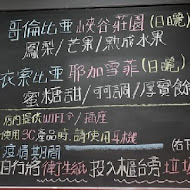 哥倫比亞 峽谷莊園(日曬)
鳳梨/芒果/熟成水果
衣索比亞 耶加雪菲(日曬)
蜜糖甜/可可調/厚實餘
店內提供WIFI、插座
使用3C產品時,請使用耳機
疫情期間
自行將衛生紙投入櫃台旁垃圾